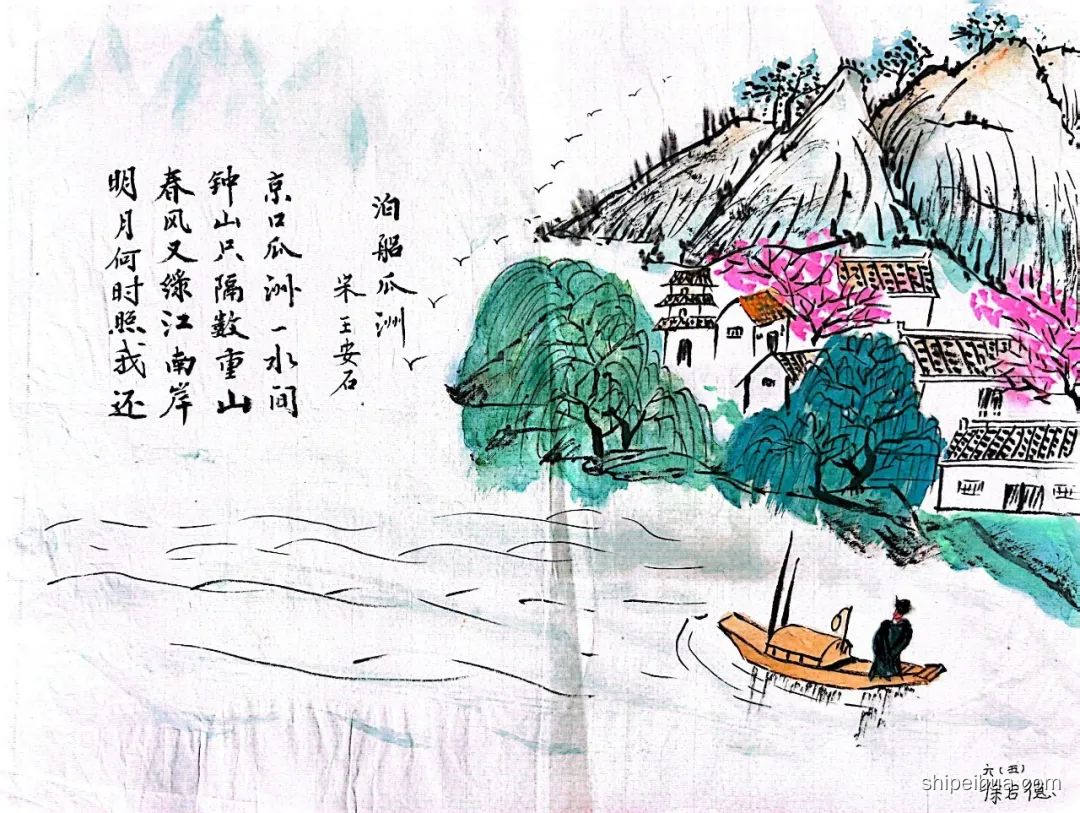 泊船瓜洲
宋 王安石
京口瓜洲一水间
钟山只隔数重山
春风又绿江南岸
明月何时照我还
六（五）
shipeihua.com